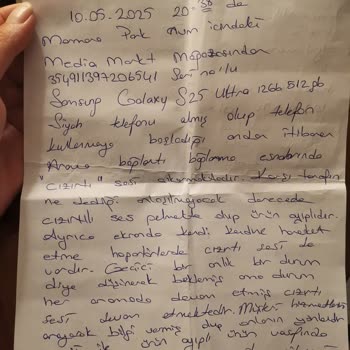 10.05.2025 20:38 de
Marmara Park Avm içindeki
Media Markt Mağazasından
354911397206541 Seri no'lu
Samsung Galaxy S25 Ultra 12Gb 512gb
Siyah telefonu almış olup telefon
kullanmaya başladığı andan itibaren
Arama bağlantı bağlanma esnasında
"CIZIRTI" sesi Karşı tarafın
ne dediği anlaşılmayacak derecede
cızırtılı ses gelmekte olup ürün ayıplıdır.
Ayrıca ekranda kendi kendine hareket
etme hoparlörlerde cızırtı sesi de
vardır. Geçici bir anlık bir durum
diye düşünerek beklemiş ama durum
her aramada devam etmiş cızırtı
sesi devam etmektedir. Müşteri hizmetleri
arayarak bilgi vermiş olup onların
ürün ayıplı ürün vasfında